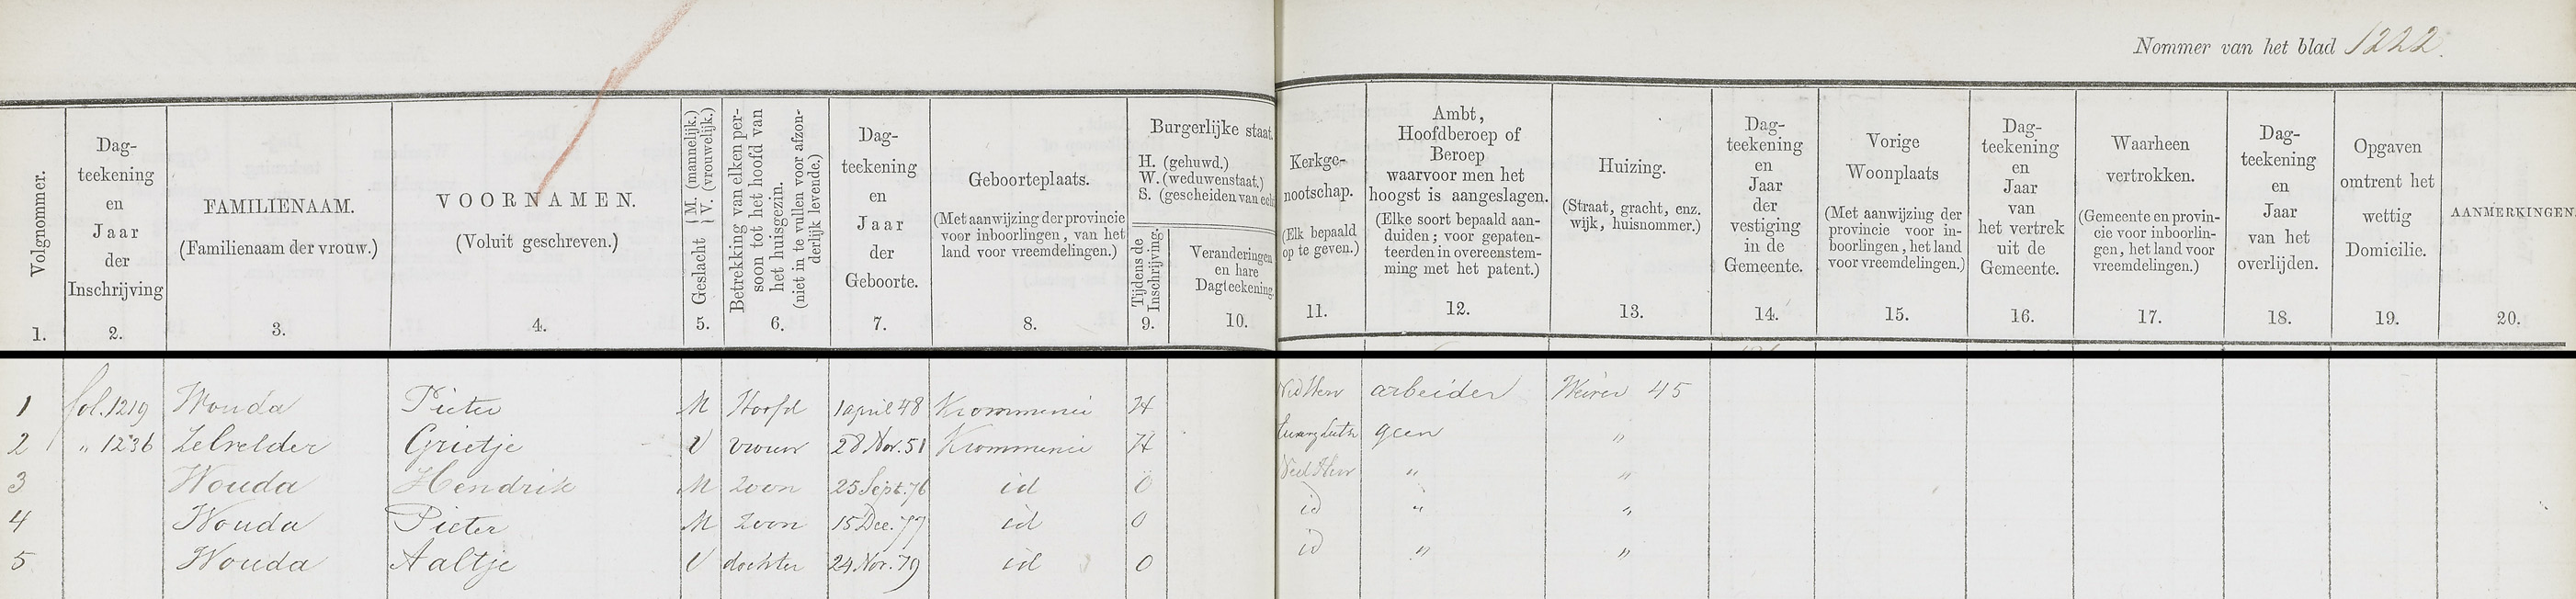 Nommer van het blad 1222.
Volgnommer.
1.
Dag-
teekening
en
Jaar
der
Inschrijving
2.
FAMILIENAAM.
(Familienaam der vrouw.)
3.
VOORNAMEN.
(Voluit geschreven.)
4.
Geslacht { M. (mannelijk.)
V. (vrouwelijk.)
5.
Betrekking van elken per-
soon tot het hoofd van
het huisgezin.
(niet in te vullen voor afzon-
derlijk levende.)
6.
Dag-
teekening
en
Jaar
der
Geboorte.
7.
Geboorteplaats.
(Met aanwijzing der provincie
voor inboorlingen, van het
land voor vreemdelingen.)
8.
Burgerlijke staat.
H. (gehuwd.)
W. (weduwenstaat.)
S. (gescheiden van
Tijdens de
Inschrijving.
9.
Veranderingen
en hare
Dagteekening
10.
Kerkge-
nootschap.
(Elk bepaald
op te geven.)
11.
Ambt,
Hoofdberoep of
Beroep
waarvoor men het
hoogst is aangeslagen.
(Elke soort bepaald aan-
duiden; voor gepaten-
teerden in overeenstem-
ming met het patent.)
12.
Huizing.
(Straat, gracht, enz.
wijk, huisnommer.)
13.
Dag-
teekening
en
Jaar
der
vestiging
in de
Gemeente.
14.
Vorige
Woonplaats
(Met aanwijzing der
provincie voor in-
boorlingen, het land
voor vreemdelingen.)
15.
Dag-
teekening
en
Jaar
van
het vertrek
uit de
Gemeente.
16.
Waarheen
vertrokken.
(Gemeente en provin-
cie voor inboorlin-
gen, het land voor
vreemdelingen.)
17.
Dag-
teekening
en
Jaar
van het
overlijden.
18.
Opgaven
omtrent het
wettig
Domicilie.
19.
AANMERKINGEN
20.
1 fol. 1219 Wouda Pieter M Hoofd 1 april 48 Krommenie H Ned Herv arbeider Weiver 45
2 " 1236 Zelvelder Grietje V vrouw 28 Nov. 51 Krommenie H Evang Luth geen "
3 Wouda Hendrik M Zoon 25 Sept. 76 id O Ned Herv " "
4 Wouda Pieter M Zoon 15 Dec. 77 id O id " "
5 Wouda Aaltje V dochter 24 Nov. 79 id O id " "